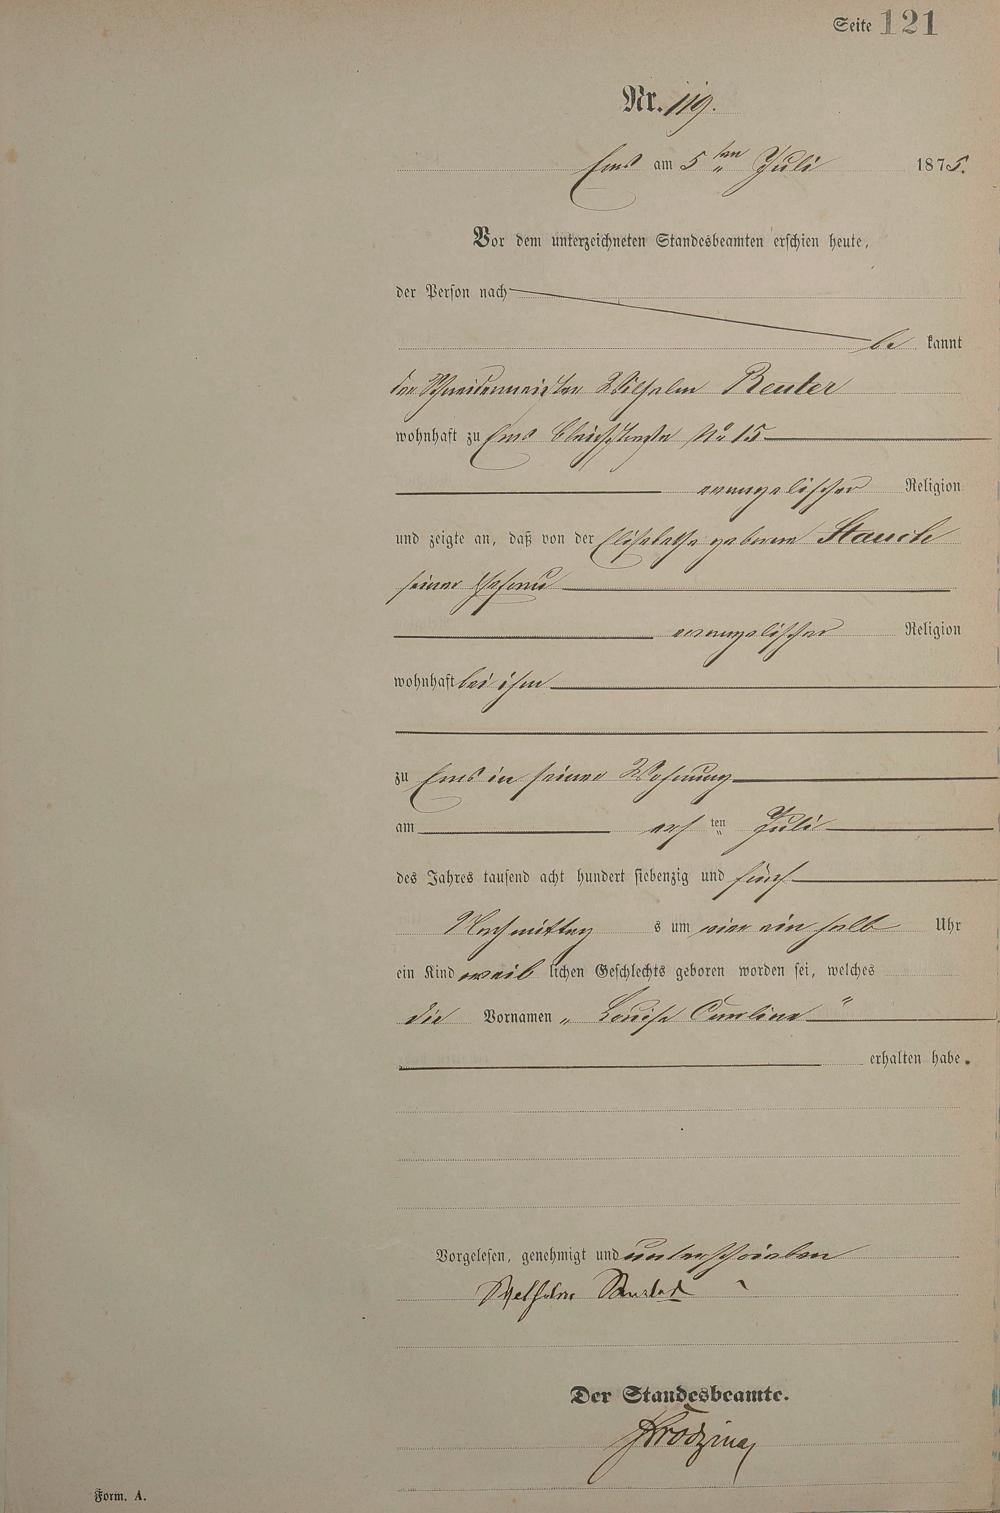 Seite 121
Nr. 119.
Ems am 5 ten Juli 1875.
Vor dem unterzeichneten Standesbeamten erschien heute,
der Person nach
be kannt
der Schneidermeister Wilhelm Reuter
wohnhaft zu Ems Bleichstraße No 15
evangelischer Religion
und zeigte an, daß von der Elisabethe geborene Stauch
seiner Ehefrau
evangelischer Religion
wohnhaft bei ihm
zu Ems in seiner Wohnung
am ersten Juli
des Jahres tausend acht hundert siebenzig und fünf
Nachmittag s um vier ein halb Uhr
ein Kind weib lichen Geschlechts geboren worden sei, welches
die Vornamen „ Louise Caroline “
erhalten habe.
Vorgelesen, genehmigt und unterschrieben
Wilhelm Reuter
Der Standesbeamte.
Form. A.